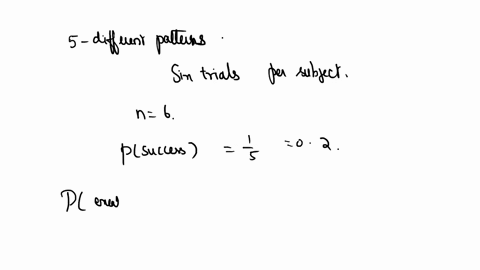 5 - different patterns .
Sin trials per subject.
n = 6.
p(success) = 1/5 = 0.2.
P(